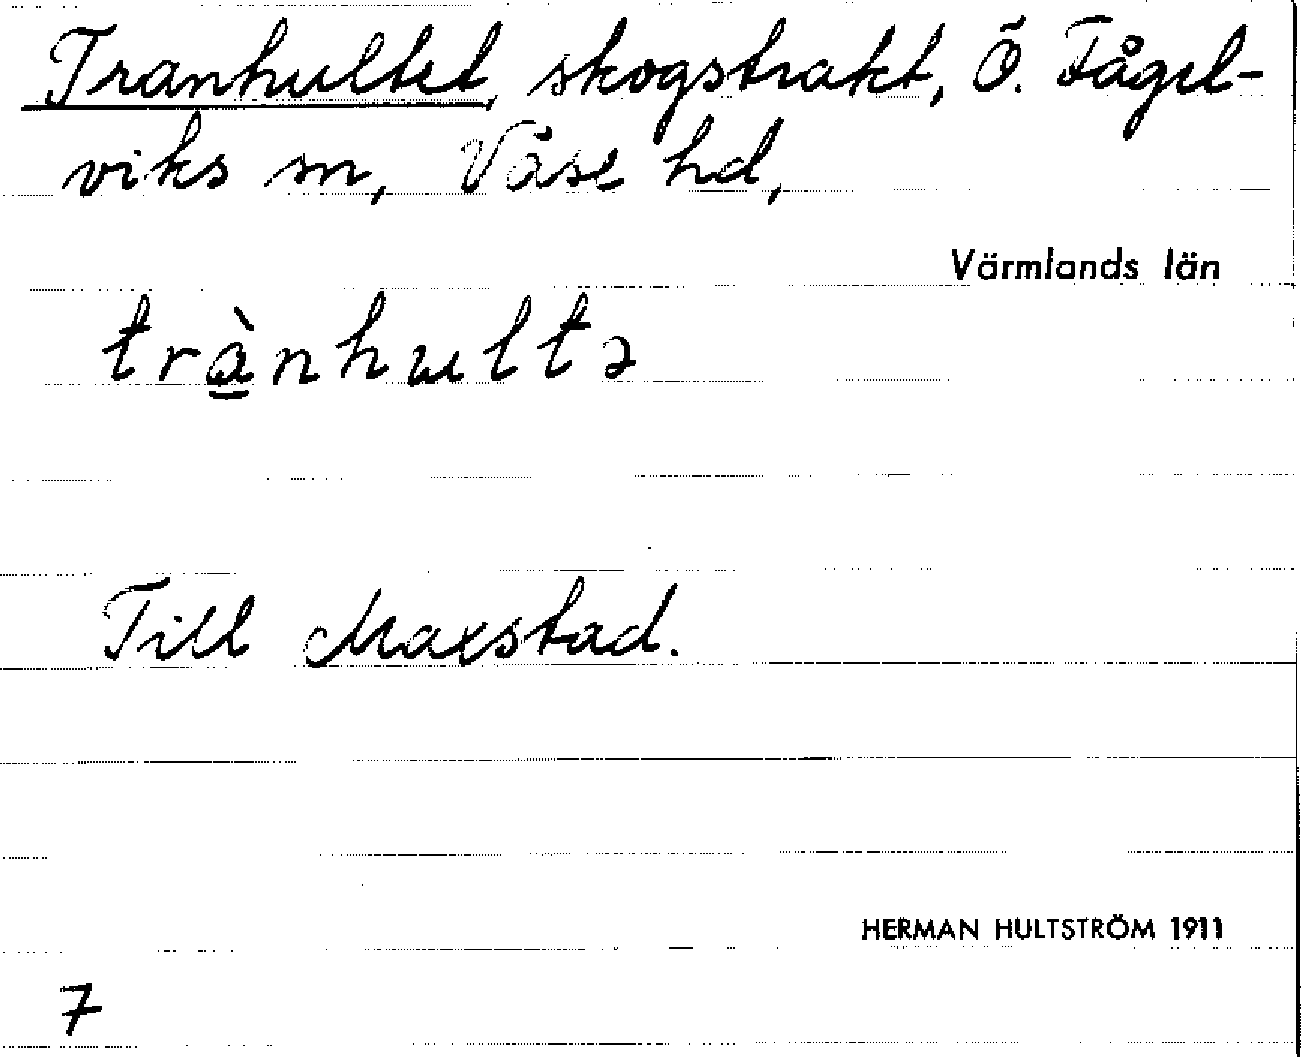 Tranhultet, skogstrakt, Ö. Fågel-
viks sn, Väse hd,
Värmlands län
trà̱nhultə
Till Maxstad.
HERMAN HULTSTRÖM 1911
7